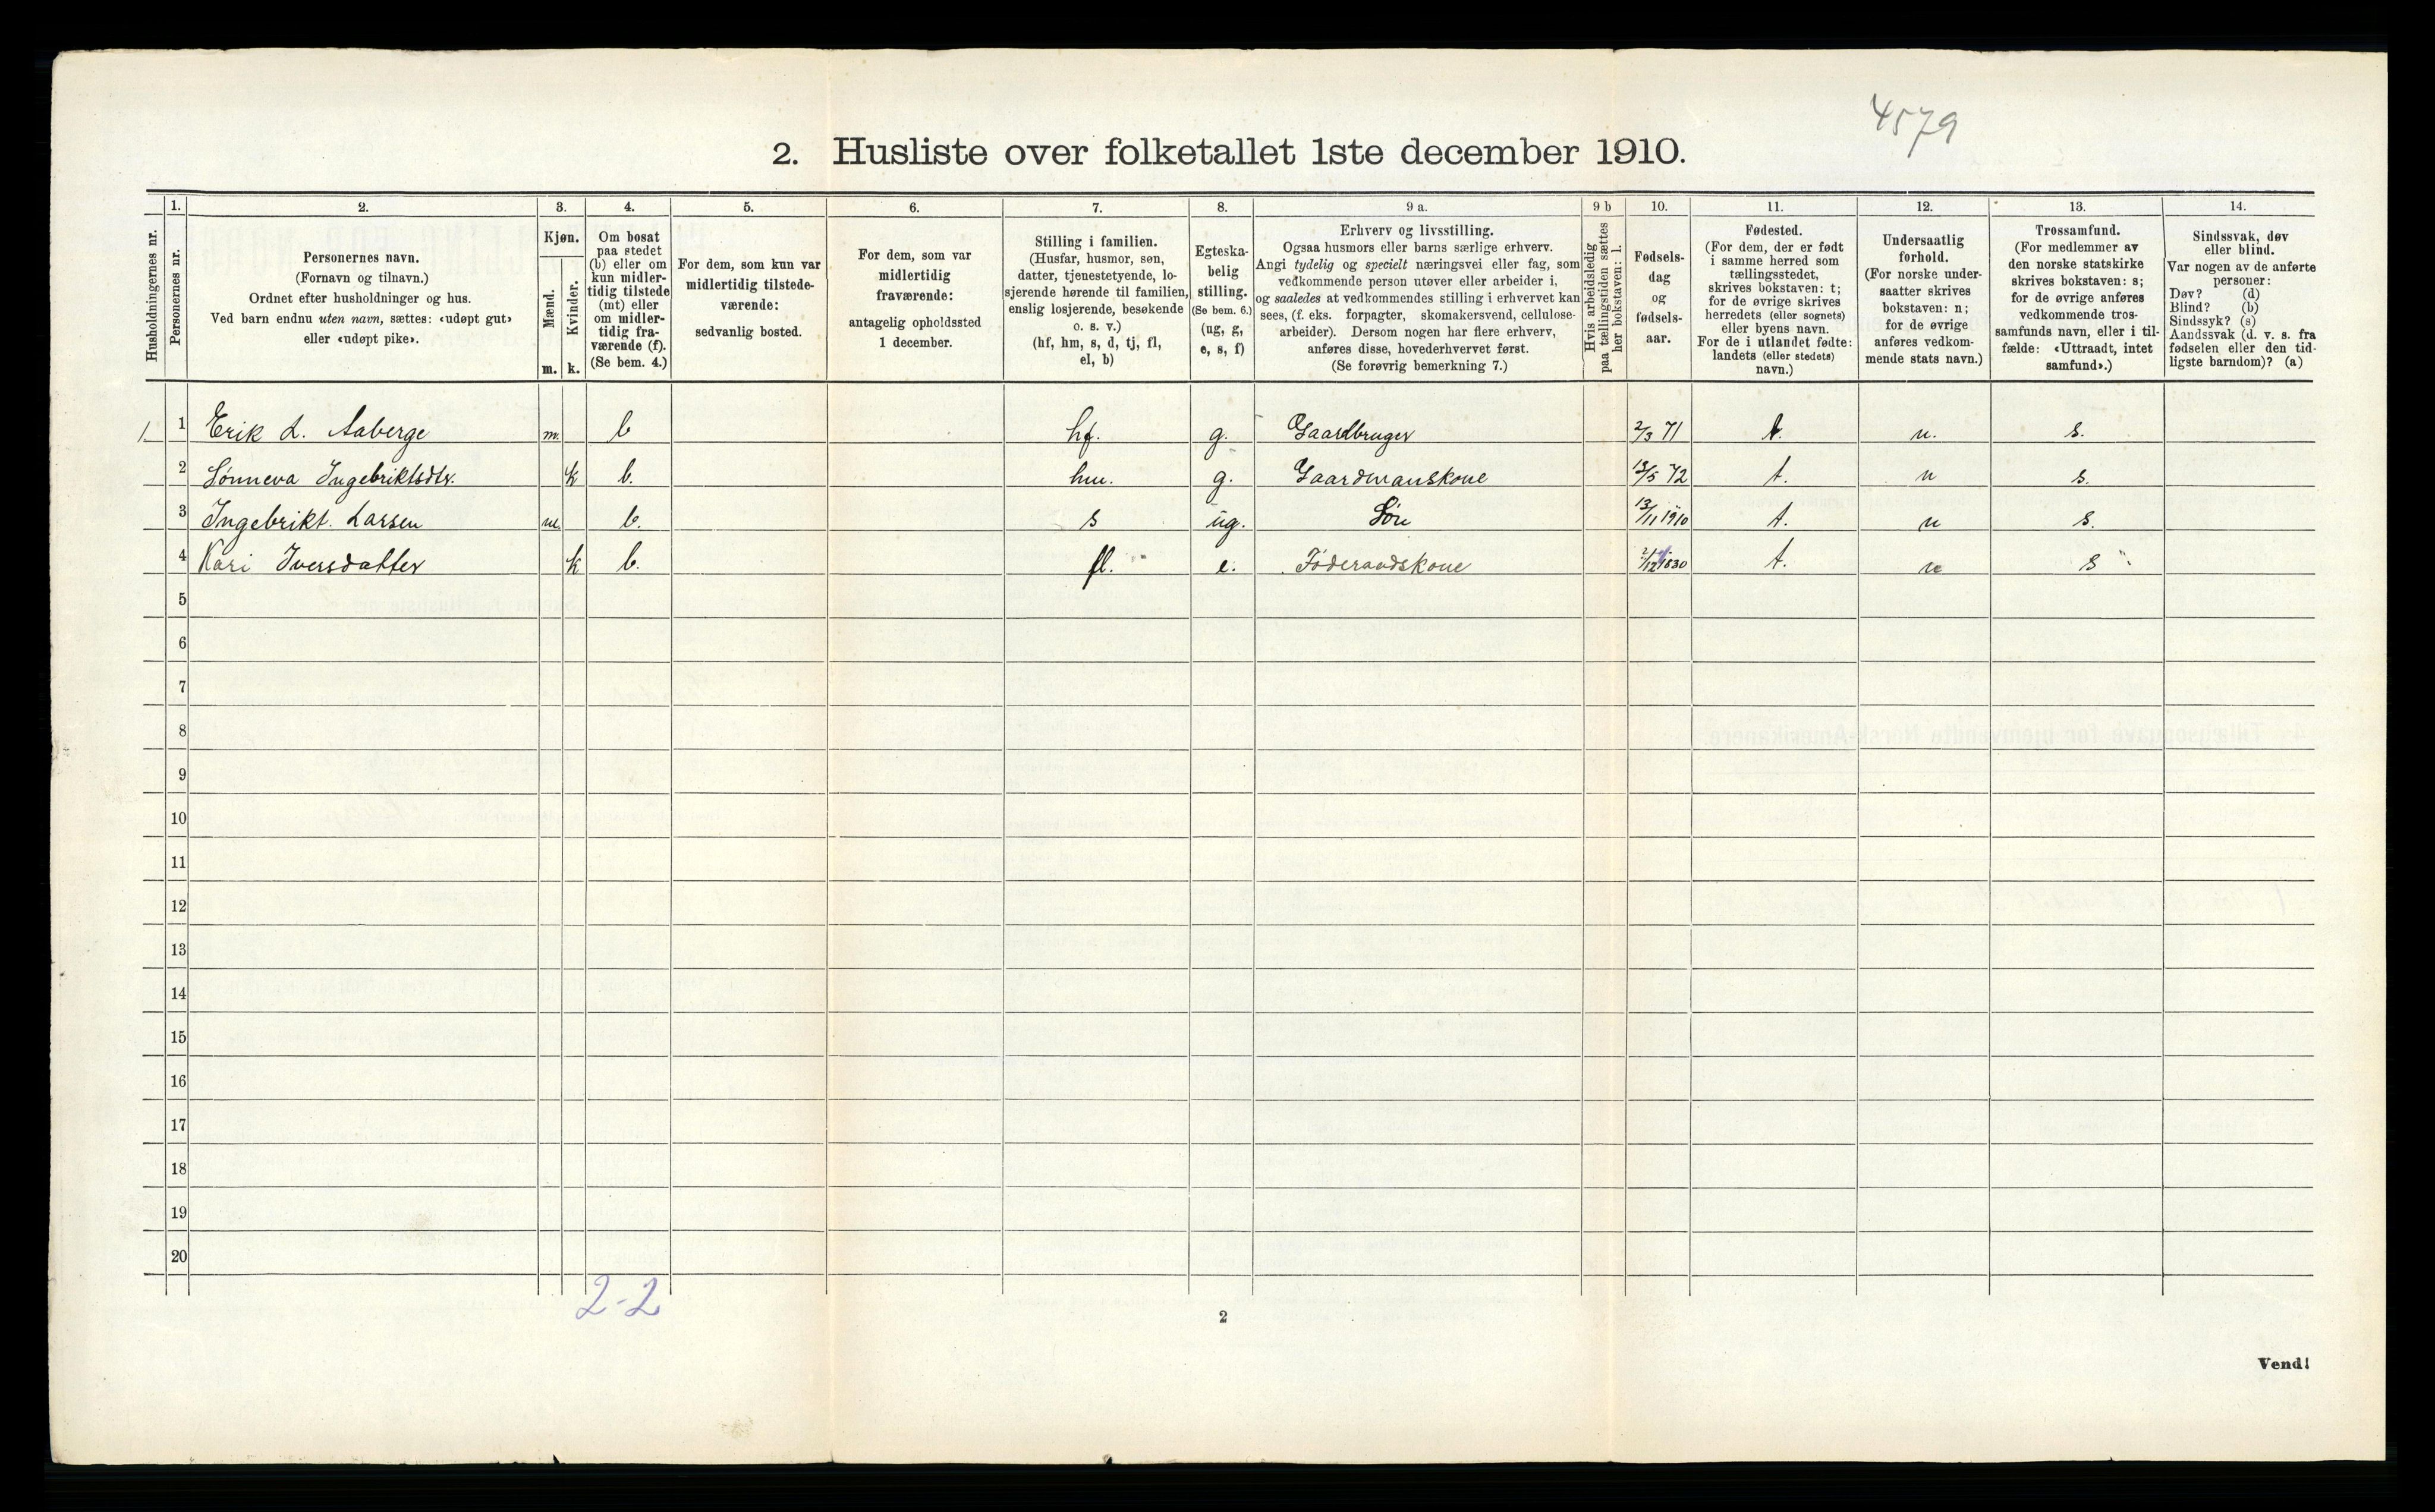 4579
2. Husliste over folketallet 1ste december 1910.
Husholdningernes nr.
1.
Personernes nr.
2.
Personernes navn.
(Fornavn og tilnavn.)
Ordnet efter husholdninger og hus.
Ved barn endnu uten navn, sættes: «udøpt gut»
eller «udøpt pike».
3.
Kjøn.
Mænd.
Kvinder.
m. k.
4.
Om bosat
paa stedet
(b) eller om
kun midler-
tidig tilstede
(mt) eller
om midler-
tidig fra-
værende (f).
(Se bem. 4.)
5.
For dem, som kun var
midlertidig tilstede-
værende:
sedvanlig bosted.
6.
For dem, som var
midlertidig
fraværende:
antagelig opholdssted
1 december.
7.
Stilling i familien.
(Husfar, husmor, søn,
datter, tjenestetyende, lo-
sjerende hørende til familien,
enslig losjerende, besøkende
o. s. v.)
(hf, hm, s, d, tj, fl,
el, b)
8.
Egteska-
belig
stilling.
(Se bem. 6.)
(ug, g,
e, s, f)
9 a.
Erhverv og livsstilling.
Ogsaa husmors eller barns særlige erhverv.
Angi tydelig og specielt næringsvei eller fag, som
vedkommende person utøver eller arbeider i,
og saaledes at vedkommendes stilling i erhvervet kan
sees, (f. eks. forpagter, skomakersvend, cellulose-
arbeider). Dersom nogen har flere erhverv,
anføres disse, hovederhvervet først.
(Se forøvrig bemerkning 7.)
9 b
Hvis arbeidsledig
paa tællingstiden sættes
her bokstaven: l.
10.
Fødsels-
dag
og
fødsels-
aar.
11.
Fødested.
(For dem, der er født
i samme herred som
tællingsstedet,
skrives bokstaven: t;
for de øvrige skrives
herredets (eller sognets)
eller byens navn.
For de i utlandet fødte:
landets (eller stedets)
navn.)
12.
Undersaatlig
forhold.
(For norske under-
saatter skrives
bokstaven: n;
for de øvrige
anføres vedkom-
mende stats navn.)
13.
Trossamfund.
(For medlemmer av
den norske statskirke
skrives bokstaven: s;
for de øvrige anføres
vedkommende tros-
samfunds navn, eller i til-
fælde: «Uttraadt, intet
samfund».)
14.
Sindssvak, døv
eller blind.
Var nogen av de anførte
personer:
Døv? (d)
Blind? (b)
Sindssyk? (s)
Aandssvak (d. v. s. fra
fødselen eller den tid-
ligste barndom)? (a)
1 1 Erik L. Aaberge m. b hf. g. Gaardbruger 2/3 71 t. n. s.
2 Sønneva Ingebriktsdtr. k b. hm. g. Gaardmanskone 13/5 72 t. n s.
3 Ingebrikt. Larsen m. b. s ug. Søn 13/11 1910 t. n s.
4 Kari Iversdatter k b. fl. e. Føderaadskone 2/12 1830 t. n s
5
6
7
8
9
10
11
12
13
14
15
16
17
18
19
20
2-2
2
Vend!